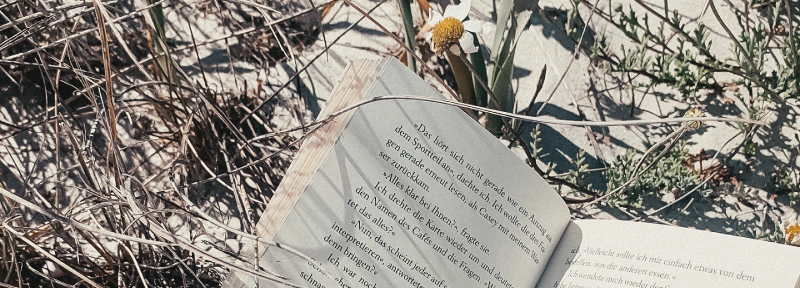 »Das hört sich nicht gerade wie ein Auszug aus
dem Sportteil an«, dachte ich. Ich wollte die Fra-
gen gerade erneut lesen, als Casey mit meinem Was-
ser zurückkam.
»Alles klar bei Ihnen?«, fragte sie.
Ich drehte die Karte wieder um und deutete
den Namen des Cafés und die Fragen.
tet das alles?«
»Nun, das scheint jeder auf
interpretieren«, antwortete
denn bringen?«
Ich war noch
schnapp
»Vielleicht sollte ich mir einfach etwas von dem
bestellen, was die anderen essen.«
Ich wendete mich wieder der